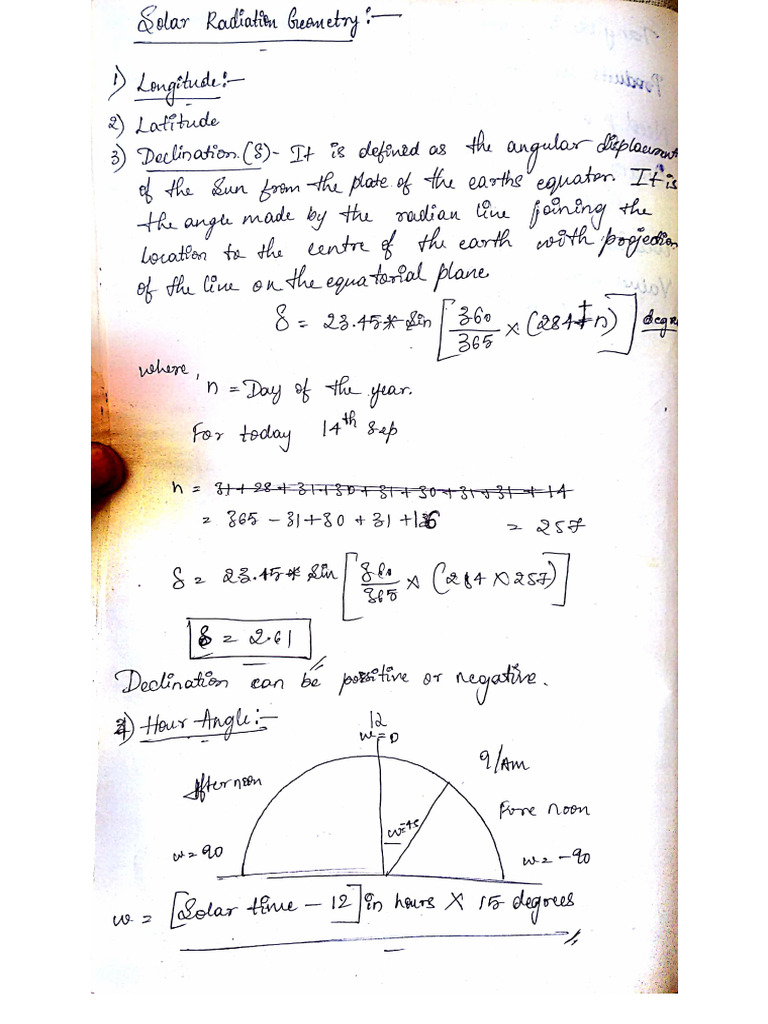 Solar Radiation Geometry:-
1) Longitude:-
2) Latitude
3) Declination(δ)- It is defined as the angular displacement
of the Sun from the plate of the earths equator. It is
the angle made by the radian line joining the
location to the centre of the earth with projection
of the line on the equatorial plane
δ = 23.45* Sin [360/365 × (284+n)] degre
where,
n = Day of the year.
For today 14th Sep
n = 31+28+31+30+31+30+31+31+14
= 365-31+30+31+16 = 257
δ = 23.45* Sin [360/365 × (284×257)]
δ = 2.61
Declination can be positive or negative.
4) Hour Angle:-
12
w=0
9/AM
Afternoon
Fore noon
w=45
w=90
w=-90
w = [Solar time - 12] in hours × 15 degrees